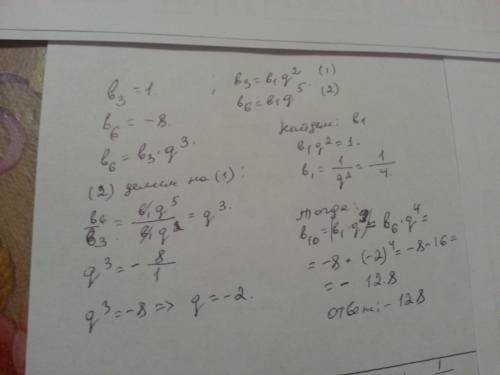 в₃ = 1
в₆ = -8
в₆ = в₃ · q³.
(2) делим на (1):
в₆/в₃ = в₁q⁵/в₁q² = q³.
q³ = - 8/1
q³ = -8 => q = -2.
; в₃ = в₁q² (1)
в₆ = в₁q⁵. (2)
Найдем: в₁
в₁q² = 1.
в₁ = 1/q² = 1/4.
Тогда:
в₁₀ = (в₁q⁹) = в₆ · q⁴ =
= -8 · (-2)⁴ = -8 · 16 =
= - 128
ответ: -128